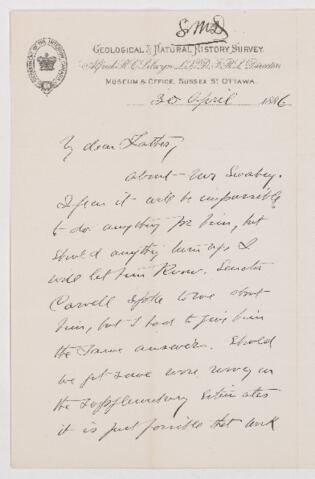 GMD
GEOLOGICAL & NATURAL HISTORY SURVEY.
Alfred R. C. Selwyn, L.L.D., F.R.S., Director
MUSEUM & OFFICE, SUSSEX ST. OTTAWA.
30 April 1886
My dear Father,
About Mr Swabey.
I fear it will be impossible
to do anything for him, but
should anything turn up I
will let him know. Senator
Carvell spoke to me about
him, but I had to give him
the same answer. Should
we get some more money in
the Supplementary Estimates
it is just possible that work